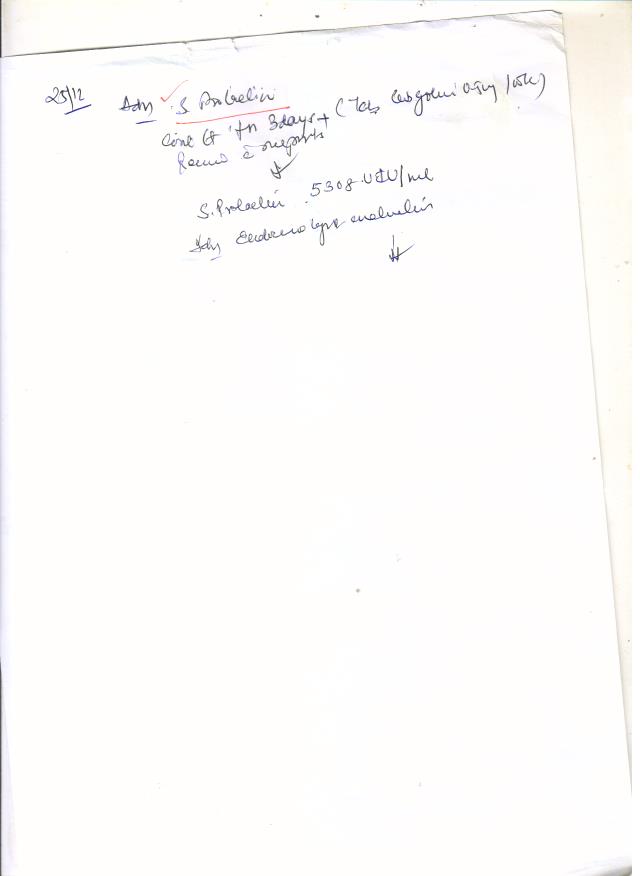 25/12 Adv S. Prolactin
Cont Rt for 3 days + (Tab Cabgolin 0.5mg / wk)
Review c reports
S. Prolactin 5308 uIU/ml
Adv Endocrinologist evaluation